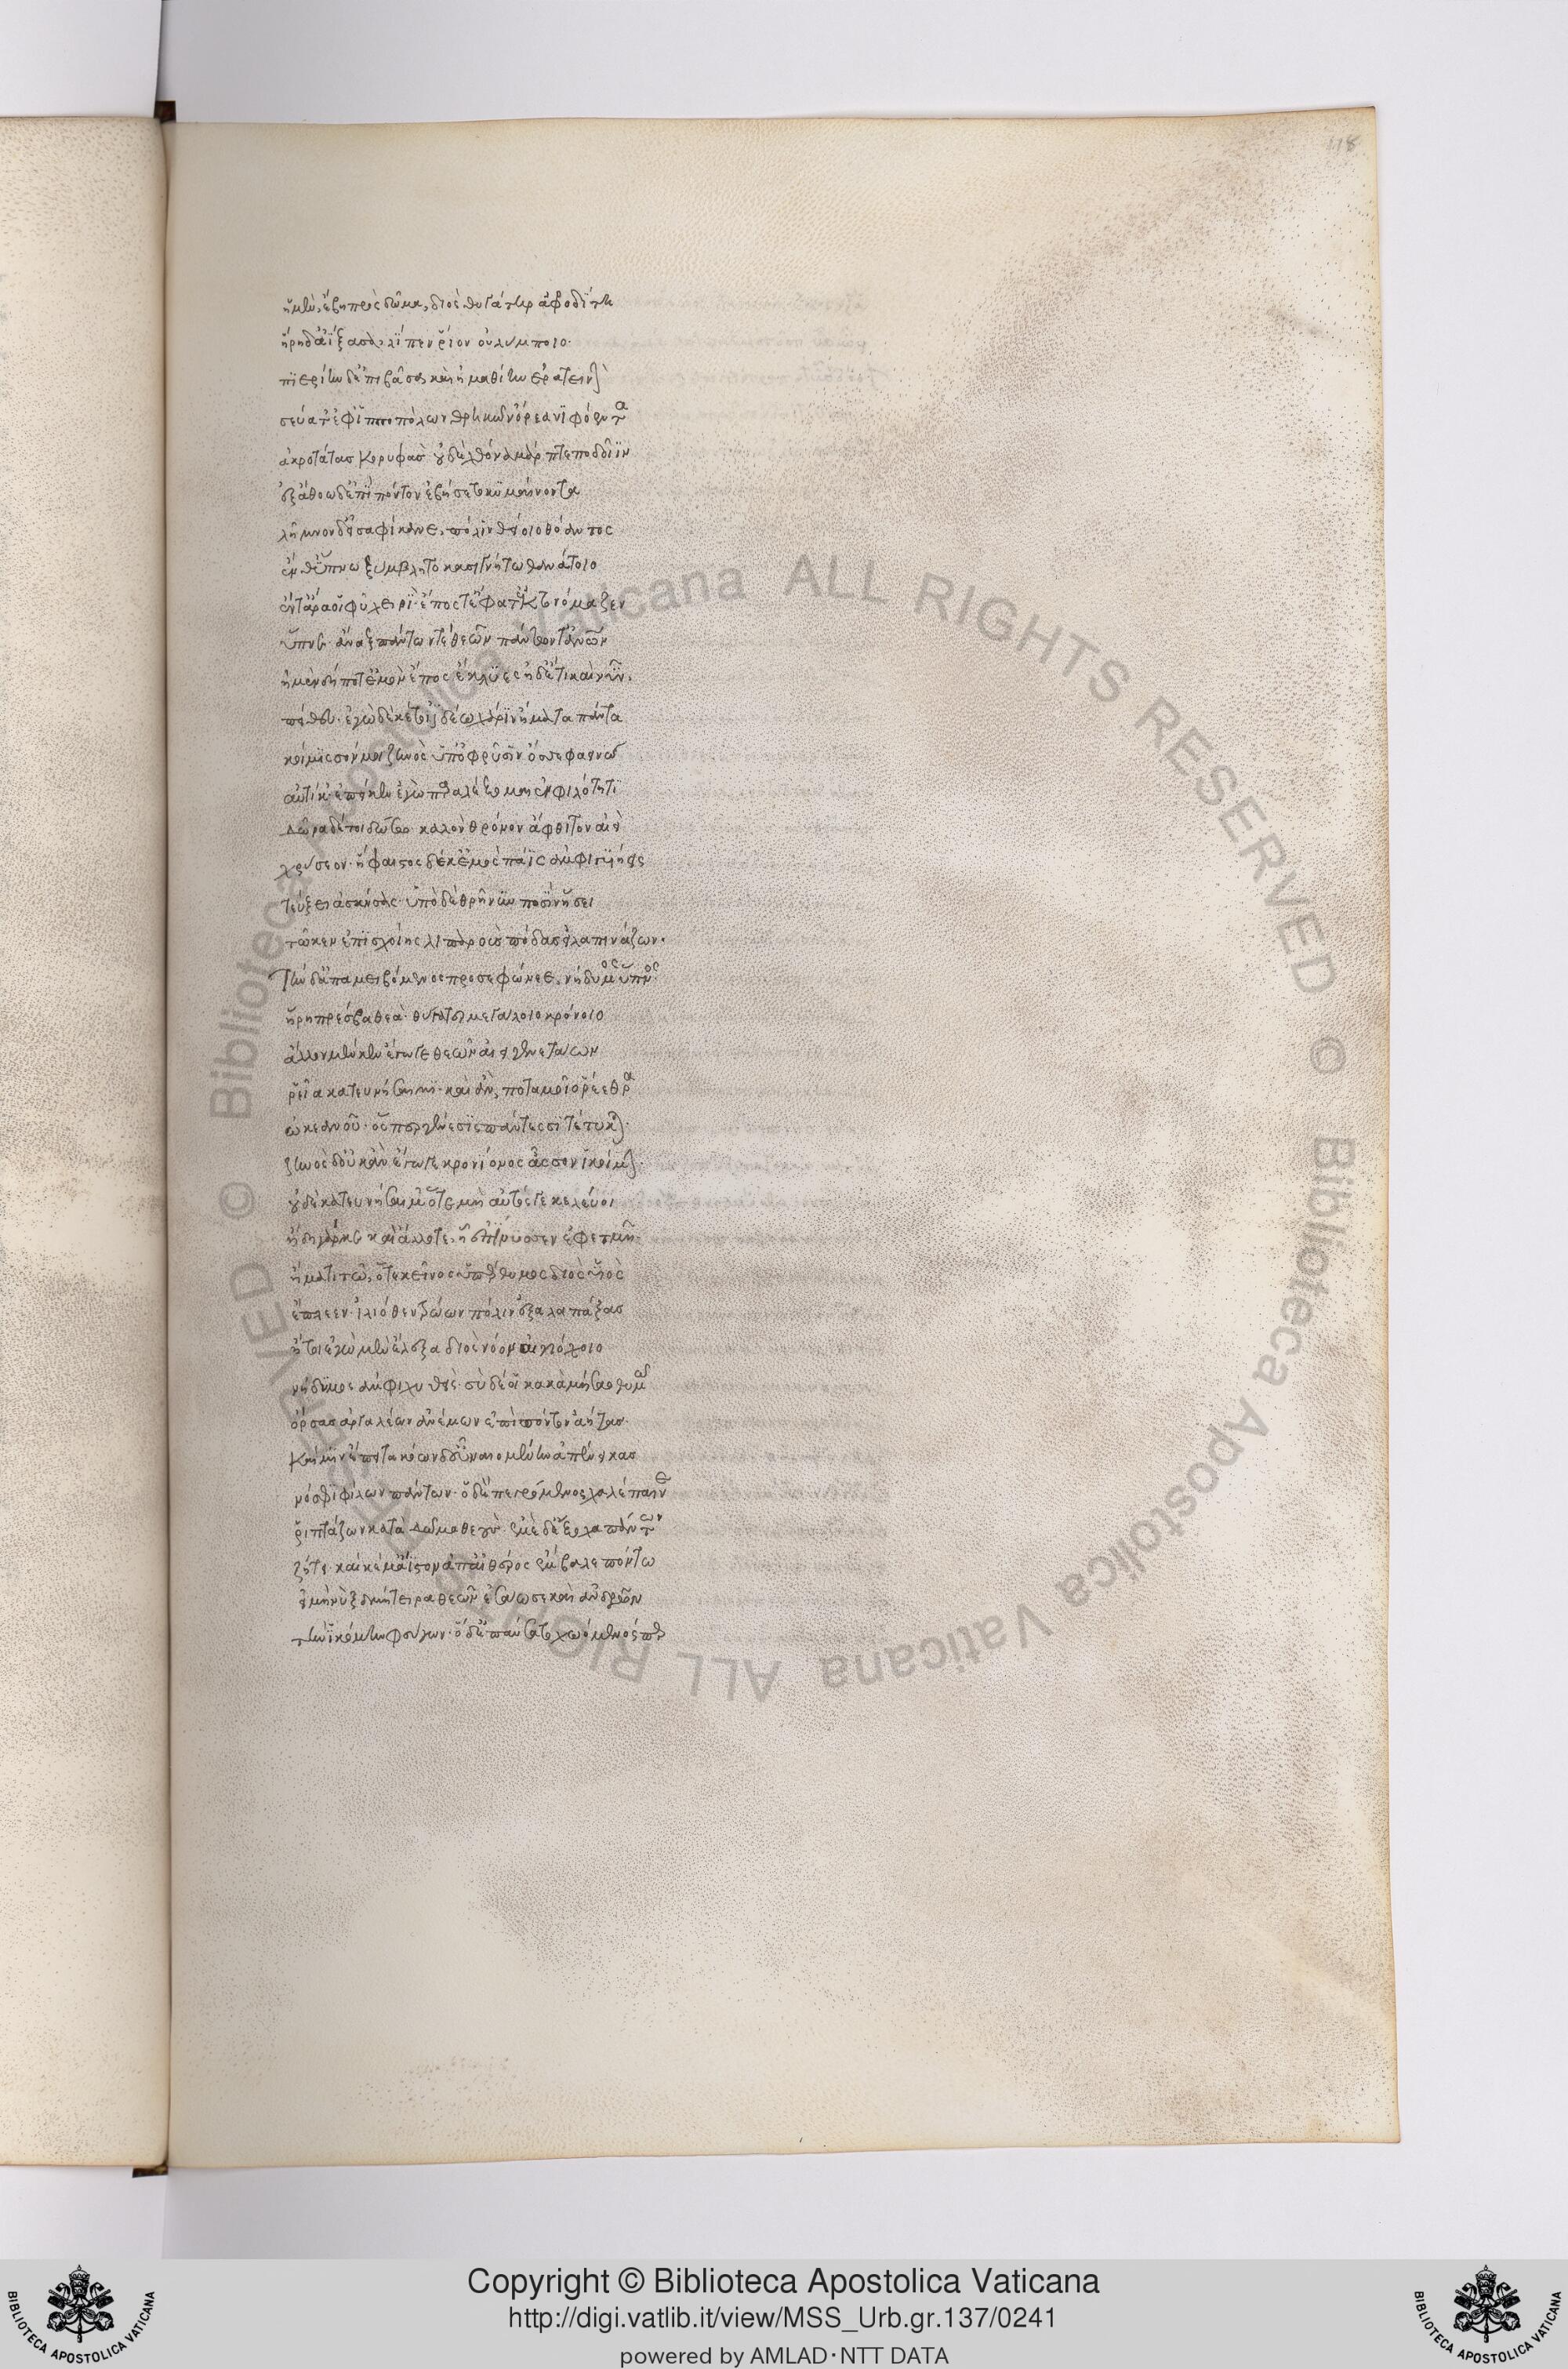 118
ἡ μὲν ἔβη πρὸς δῶμα, διὸς θυγάτηρ ἀφροδίτη
ἥρη δ' ἀΐξασα λίπεν ῥίον οὐλύμποιο·
πιερίην δ' ἐπιβᾶσα καὶ ἠμαθίην ἐρατεινὴν
σεύατ' ἐφ' ἱπποπόλων θρηκῶν ὄρεα νιφόεντα
ἀκροτάτας κορυφάς· οὐδὲ χθόνα μάρπτε ποδοῖιν
ἐξ ἀθόω δ' ἐπὶ πόντον ἐβήσετο κυμαίνοντα
λῆμνον δ' εἰσαφίκανε, πόλιν θείοιο θόαντος
ἔνθ' ὕπνω ξύμβλητο κασιγνήτω θανάτοιο
ἔν τ' ἄρα οἱ φῦ χειρὶ· ἔπος τ' ἔφατ' ἔκ τ' ὀνόμαζεν
ὕπνε· ἄναξ πάντων τε θεῶν πάντων τ' ἀνθρώπων
ἠμὲν δή ποτ' ἐμὸν ἔπος ἔκλυες ἠδέ τι καὶ νῦν.
πείθευ· ἐγὼ δέ κέ τοι ἰδέω χάριν ἤματα πάντα
κοίμισόν μοι ζηνὸς ὑπ' ὀφρύσιν ὄσσε φαεινώ
αὐτίκ' ἐπεί κεν ἐγὼ παραλέξομαι ἐν φιλότητι
δῶρα δέ τοι δώσω καλὸν θρόνον ἄφθιτον αἰεὶ
χρύσεον· ἥφαιστος δέ κ' ἐμὸς πάϊς ἀμφιγυήεις
τεύξει ἀσκήσας· ὑπὸ δὲ θρῆνυν ποσὶν ἥσει
τῶ κεν ἐπισχοίης λιπαροὺς πόδας εἰλαπινάζων.
τὴν δ' ἀπαμειβόμενος προσεφώνεε, νήδυμος ὕπνος·
ἥρη πρέσβα θεά· θύγατερ μεγάλοιο κρόνοιο
ἄλλον μέν κεν ἔγωγε θεῶν αἰειγενετάων
ῥεῖα κατευνήσαιμι· καὶ ἂν, ποταμοῖο ῥέεθρα
ὠκεανοῦ· ὅσπερ γένεσις πάντεσσι τέτυκται·
ζηνὸς δ' οὐκ ἂν ἔγωγε κρονίονος ἆσσον ἱκοίμην·
οὐδὲ κατευνήσαιμ' ὅτε μὴ αὐτός γε κελεύοι
ἤδη γάρ με καὶ ἄλλοτε, ἡ σὴ ἐπίνυσσεν ἐφετμή·
ἤματι τῶ, ὅτε κεῖνος ὑπέρθυμος διὸς υἱὸς
ἔπλεεν ἰλιόθεν τρώων πόλιν ἐξαλαπάξας
ἤτοι ἐγὼ μὲν ἔλεξα διὸς νόον αἰγιόχοιο
νήδυμος ἀμφιχυθείς· σὺ δέ οἱ κακὰ μήσαο θυμῶ
ὄρσασ' ἀργαλέων ἀνέμων ἐπὶ πόντον ἀήτας·
καί μιν ἔπειτα κόωνδ' εὖ ναιομένην ἀπένεικας
νόσφι φίλων πάντων· ὁ δ' ἐπεγρόμενος χαλέπαινε
ῥιπτάζων κατὰ δῶμα θεούς· ἐμὲ δ' ἔξοχα πάντων
ζήτει· καί κέ μ' ἄϊστον ἀπ' αἰθέρος ἔμβαλε πόντω
εἰ μὴ νὺξ δμήτειρα θεῶν ἐσάωσε καὶ ἀνδρῶν
τὴν ἱκόμην φεύγων· ὁ δ' ἐπαύσατο χωόμενός περ
Copyright © Biblioteca Apostolica Vaticana
http://digi.vatlib.it/view/MSS_Urb.gr.137/0241
powered by AMLAD·NTT DATA